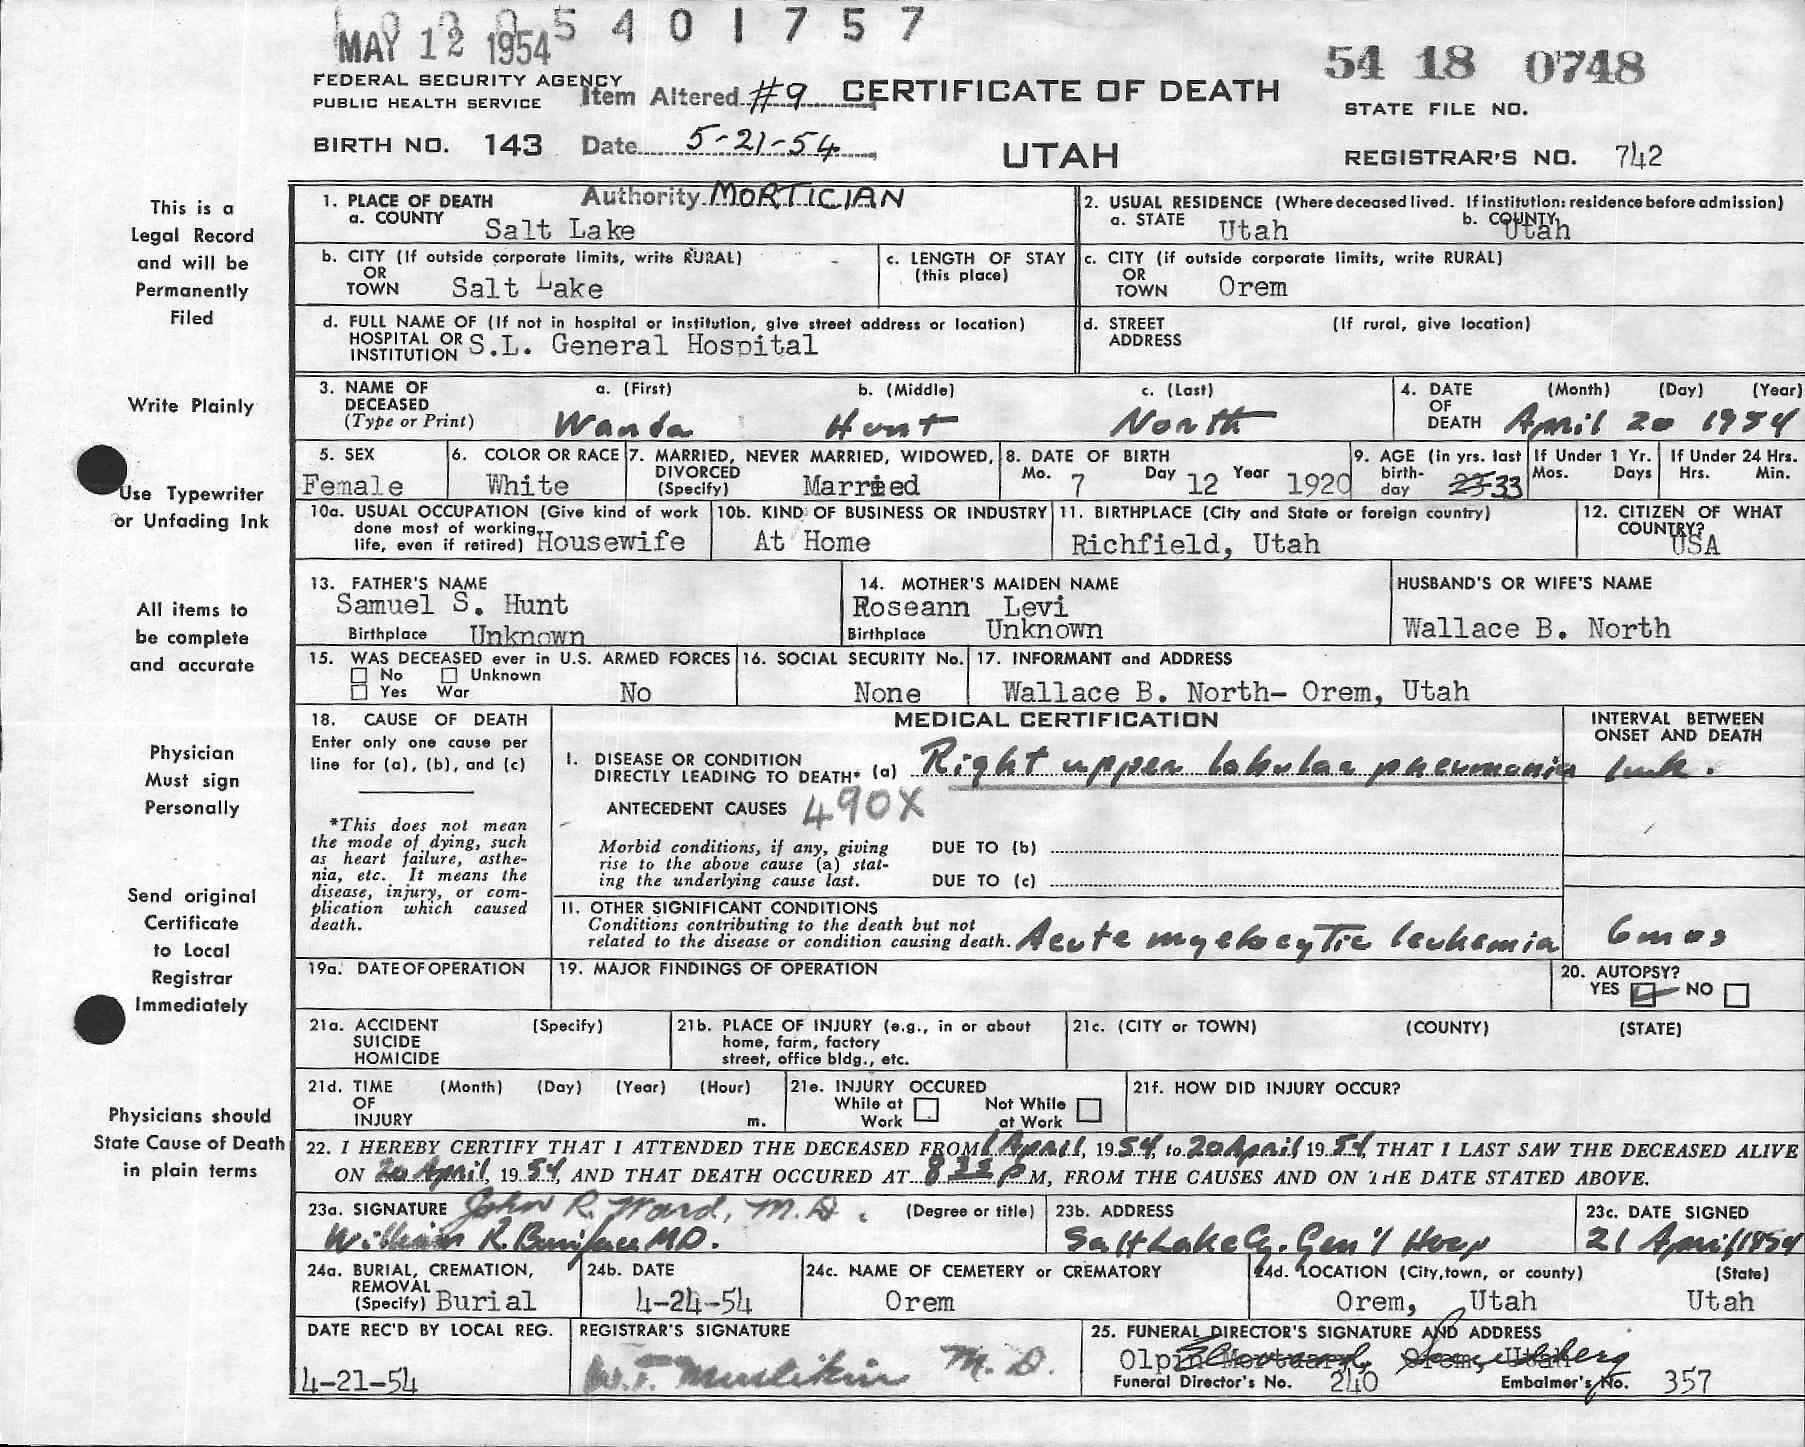 5401757
MAY 12 1954
54 18 0748
FEDERAL SECURITY AGENCY
PUBLIC HEALTH SERVICE
Item Altered #9
CERTIFICATE OF DEATH
STATE FILE NO.
BIRTH NO. 143
Date 5-21-54
UTAH
REGISTRAR'S NO. 742
Authority MORTICIAN
This is a
Legal Record
and will be
Permanently
Filed
Write Plainly
Use Typewriter
or Unfading Ink
All items to
be complete
and accurate
Physician
Must sign
Personally
Send original
Certificate
to Local
Registrar
Immediately
Physicians should
State Cause of Death
in plain terms
1. PLACE OF DEATH
a. COUNTY
Salt Lake
2. USUAL RESIDENCE (Where deceased lived. If institution: residence before admission)
a. STATE Utah b. COUNTY Utah
b. CITY (If outside corporate limits, write RURAL)
OR
TOWN Salt Lake
c. LENGTH OF STAY
(this place)
c. CITY (if outside corporate limits, write RURAL)
OR
TOWN Orem
d. FULL NAME OF (If not in hospital or institution, give street address or location)
HOSPITAL OR
INSTITUTION S.L. General Hospital
d. STREET (If rural, give location)
ADDRESS
3. NAME OF a. (First) b. (Middle) c. (Last)
DECEASED
(Type or Print) Wanda Hunt North
4. DATE (Month) (Day) (Year)
OF
DEATH April 20 1954
5. SEX
Female
6. COLOR OR RACE
White
7. MARRIED, NEVER MARRIED, WIDOWED,
DIVORCED
(Specify) Married
8. DATE OF BIRTH
Mo. 7 Day 12 Year 1920
9. AGE (in yrs. last
birth-
day 33
If Under 1 Yr.
Mos. Days
If Under 24 Hrs.
Hrs. Min.
10a. USUAL OCCUPATION (Give kind of work
done most of working
life, even if retired) Housewife
10b. KIND OF BUSINESS OR INDUSTRY
At Home
11. BIRTHPLACE (City and State or foreign country)
Richfield, Utah
12. CITIZEN OF WHAT
COUNTRY?
USA
13. FATHER'S NAME
Samuel S. Hunt
Birthplace Unknown
14. MOTHER'S MAIDEN NAME
Roseann Levi
Birthplace Unknown
HUSBAND'S OR WIFE'S NAME
Wallace B. North
15. WAS DECEASED ever in U.S. ARMED FORCES
No Unknown
Yes War No
16. SOCIAL SECURITY No.
None
17. INFORMANT and ADDRESS
Wallace B. North- Orem, Utah
18. CAUSE OF DEATH
Enter only one cause per
line for (a), (b), and (c)
*This does not mean
the mode of dying, such
as heart failure, asthe-
nia, etc. It means the
disease, injury, or com-
plication which caused
death.
MEDICAL CERTIFICATION
INTERVAL BETWEEN
ONSET AND DEATH
I. DISEASE OR CONDITION
DIRECTLY LEADING TO DEATH* (a) Right upper lobular pneumonia
ANTECEDENT CAUSES 490X
Morbid conditions, if any, giving
rise to the above cause (a) stat-
ing the underlying cause last.
DUE TO (b)
DUE TO (c)
II. OTHER SIGNIFICANT CONDITIONS
Conditions contributing to the death but not
related to the disease or condition causing death. Acute myelocytic leukemia 6 mos
19a. DATE OF OPERATION
19. MAJOR FINDINGS OF OPERATION
20. AUTOPSY?
YES NO
21a. ACCIDENT (Specify)
SUICIDE
HOMICIDE
21b. PLACE OF INJURY (e.g., in or about
home, farm, factory
street, office bldg., etc.
21c. (CITY or TOWN) (COUNTY) (STATE)
21d. TIME (Month) (Day) (Year) (Hour)
OF
INJURY m.
21e. INJURY OCCURED
While at Work Not While at Work
21f. HOW DID INJURY OCCUR?
22. I HEREBY CERTIFY THAT I ATTENDED THE DECEASED FROM 1 April, 1954, to 20 April 1954, THAT I LAST SAW THE DECEASED ALIVE
ON 20 April, 1954, AND THAT DEATH OCCURED AT 8 P M, FROM THE CAUSES AND ON THE DATE STATED ABOVE.
23a. SIGNATURE John R. Ward, M.D. (Degree or title)
William R. MD.
23b. ADDRESS
Salt Lake Gen'l Hosp
23c. DATE SIGNED
21 April 1954
24a. BURIAL, CREMATION,
REMOVAL
(Specify) Burial
24b. DATE
4-24-54
24c. NAME OF CEMETERY or CREMATORY
Orem
24d. LOCATION (City, town, or county) (State)
Orem, Utah Utah
DATE REC'D BY LOCAL REG.
4-21-54
REGISTRAR'S SIGNATURE
W.F. M.D.
25. FUNERAL DIRECTOR'S SIGNATURE AND ADDRESS
Olpin Mortuary, Orem, Utah
Funeral Director's No. 240 Embalmer's No. 357